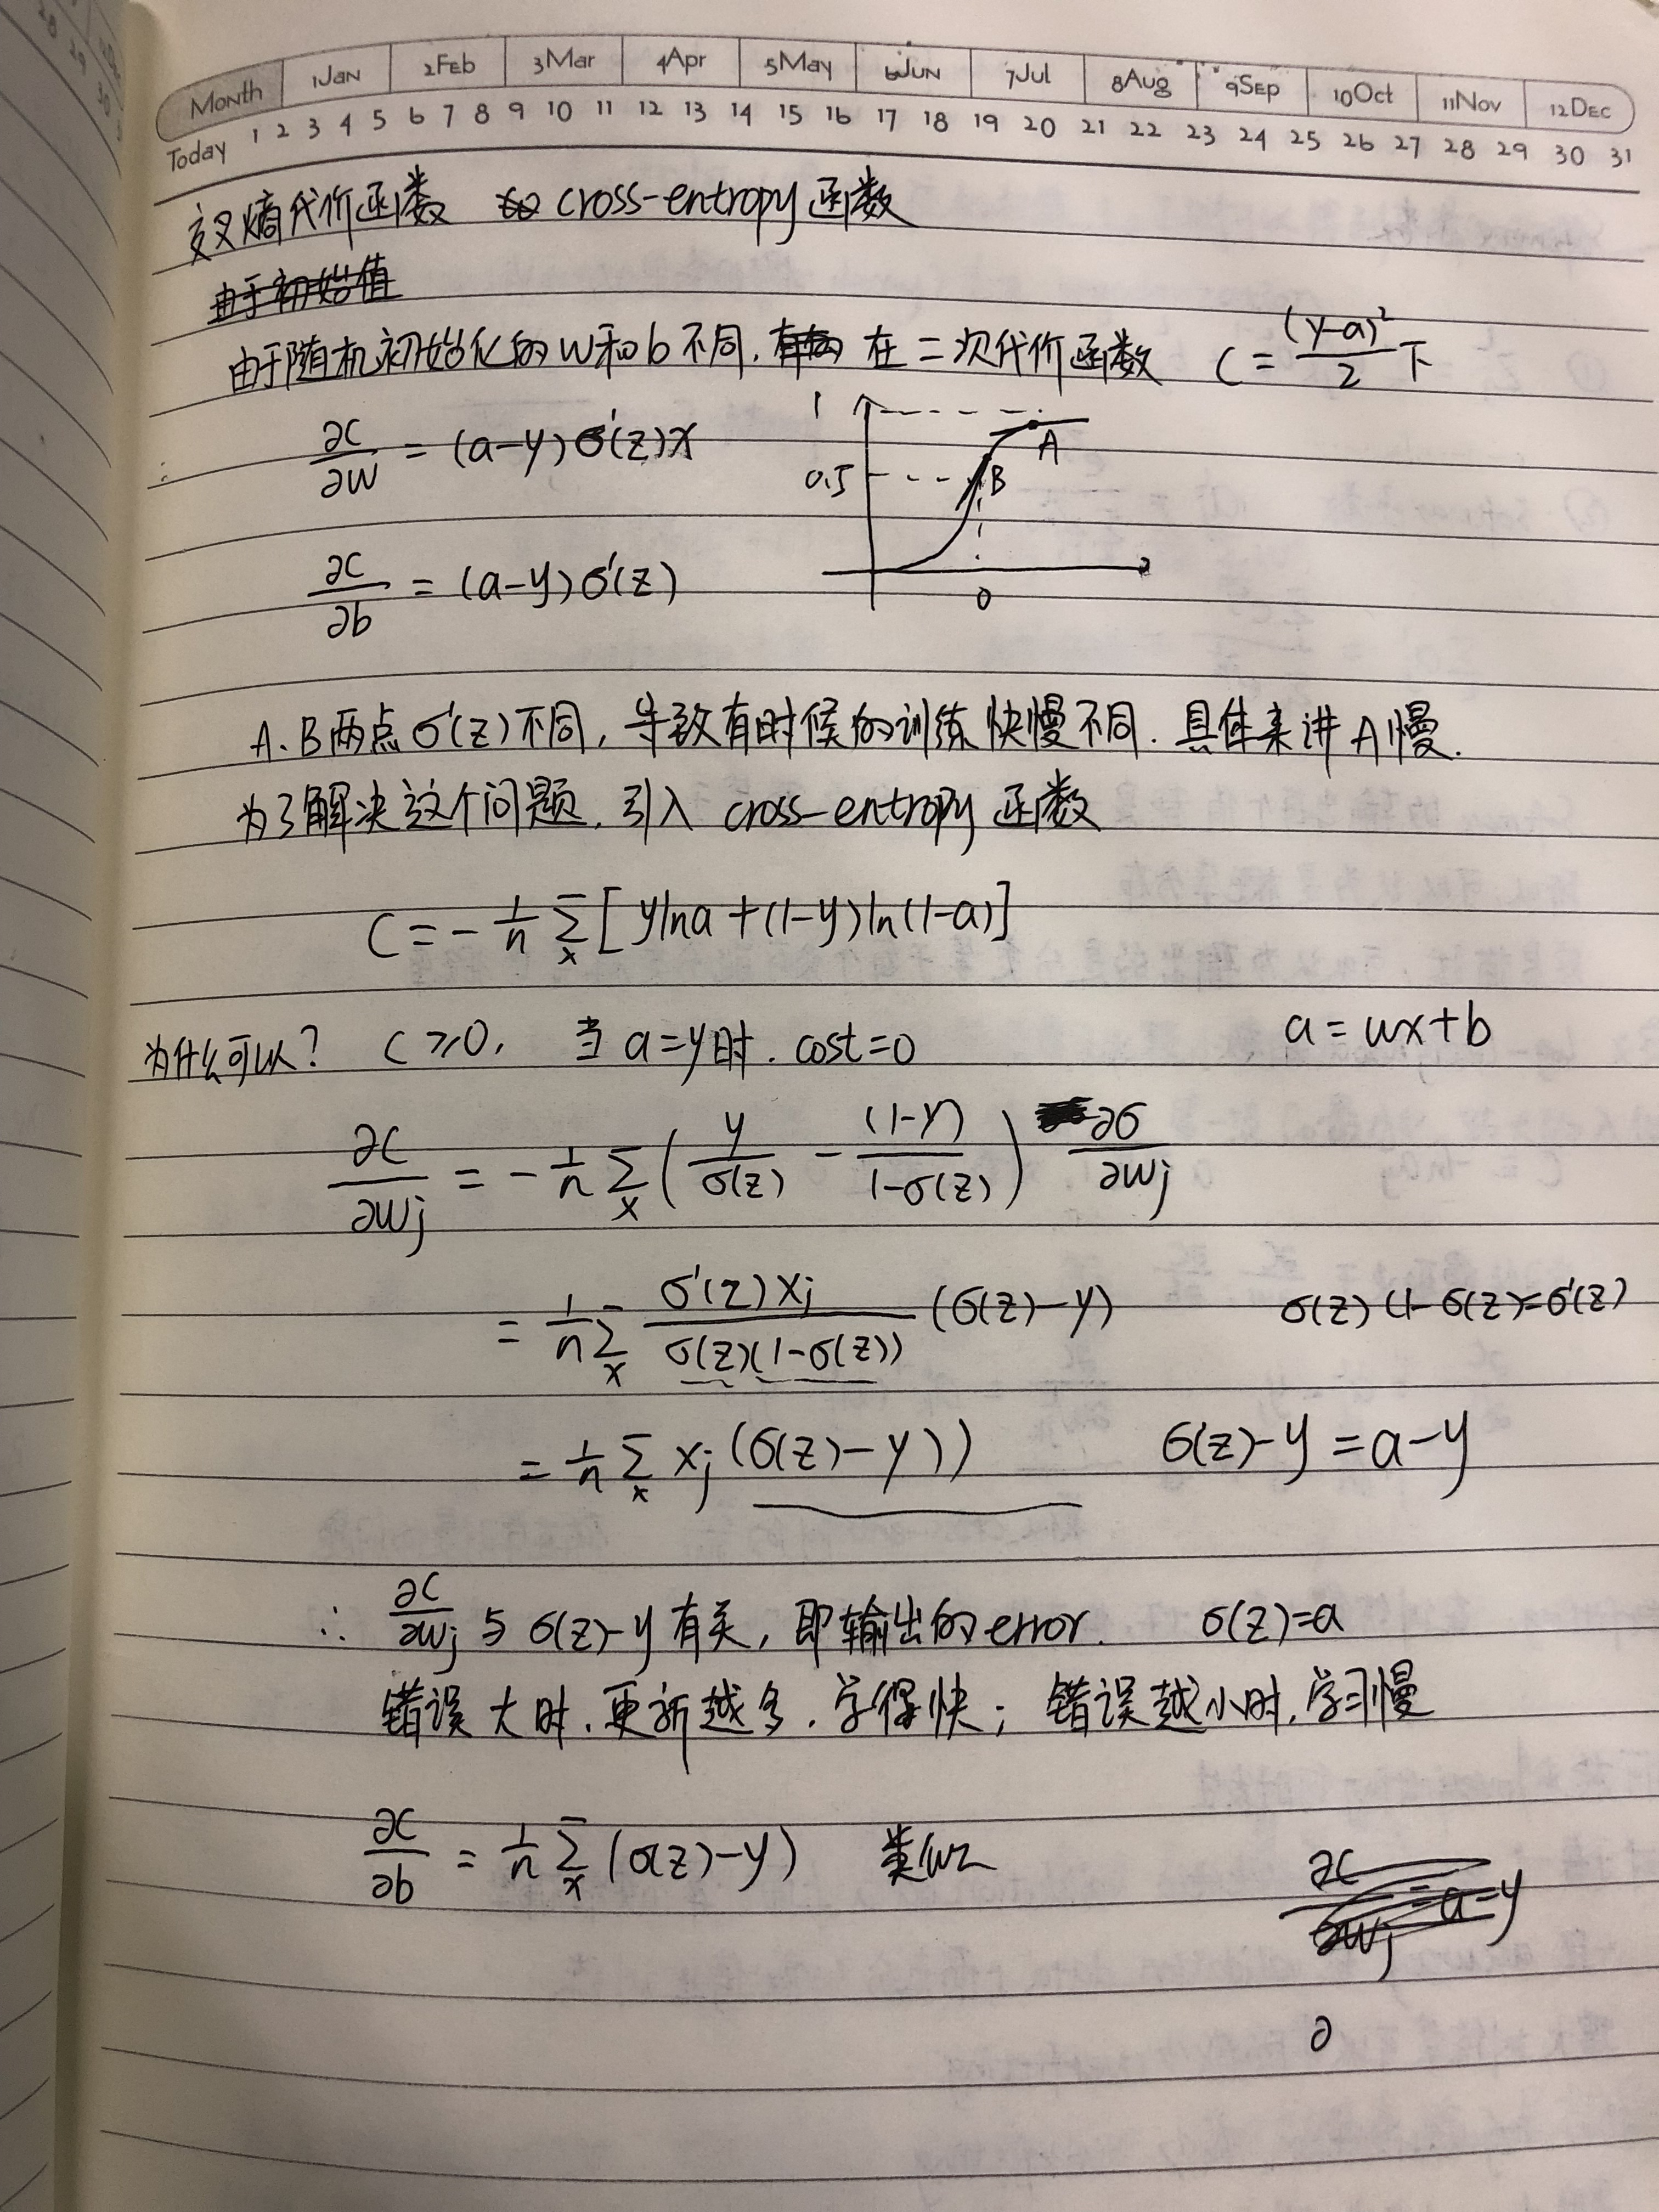 Month 1Jan 2Feb 3Mar 4Apr 5May 6Jun 7Jul 8Aug 9Sep 10Oct 11Nov 12Dec
Today 1 2 3 4 5 6 7 8 9 10 11 12 13 14 15 16 17 18 19 20 21 22 23 24 25 26 27 28 29 30 31
交叉熵代价函数 cross-entropy 函数
由于初始值
由于随机初始化的 w和b 不同, 在二次代价函数 C = (y-a)²/2 下
∂C/∂w = (a-y)σ'(z)x
1
A
0.5
B
∂C/∂b = (a-y)σ'(z)
0
A、B两点 σ'(z) 不同, 导致有时候的训练快慢不同. 具体来讲 A慢.
为了解决这个问题, 引入 cross-entropy 函数
C = - 1/n Σx [ylna + (1-y)ln(1-a)]
为什么可以? C ≥ 0, 当 a=y时. cost=0 a = wx+b
∂C/∂wj = - 1/n Σx ( y/σ(z) - (1-y)/1-σ(z) ) ∂σ/∂wj
= 1/n Σx σ'(z)xj / σ(z)(1-σ(z)) (σ(z)-y) σ(z)(1-σ(z)=σ'(z)
= 1/n Σx xj (σ(z)-y)) σ(z)-y = a-y
∴ ∂C/∂wj 与 σ(z)-y 有关, 即输出的error. σ(z)=a
错误大时, 更新越多, 学得快; 错误越小时, 学习慢
∂C/∂b = 1/n Σx (σ(z)-y) 类似
∂C/∂wj = a-y
∂